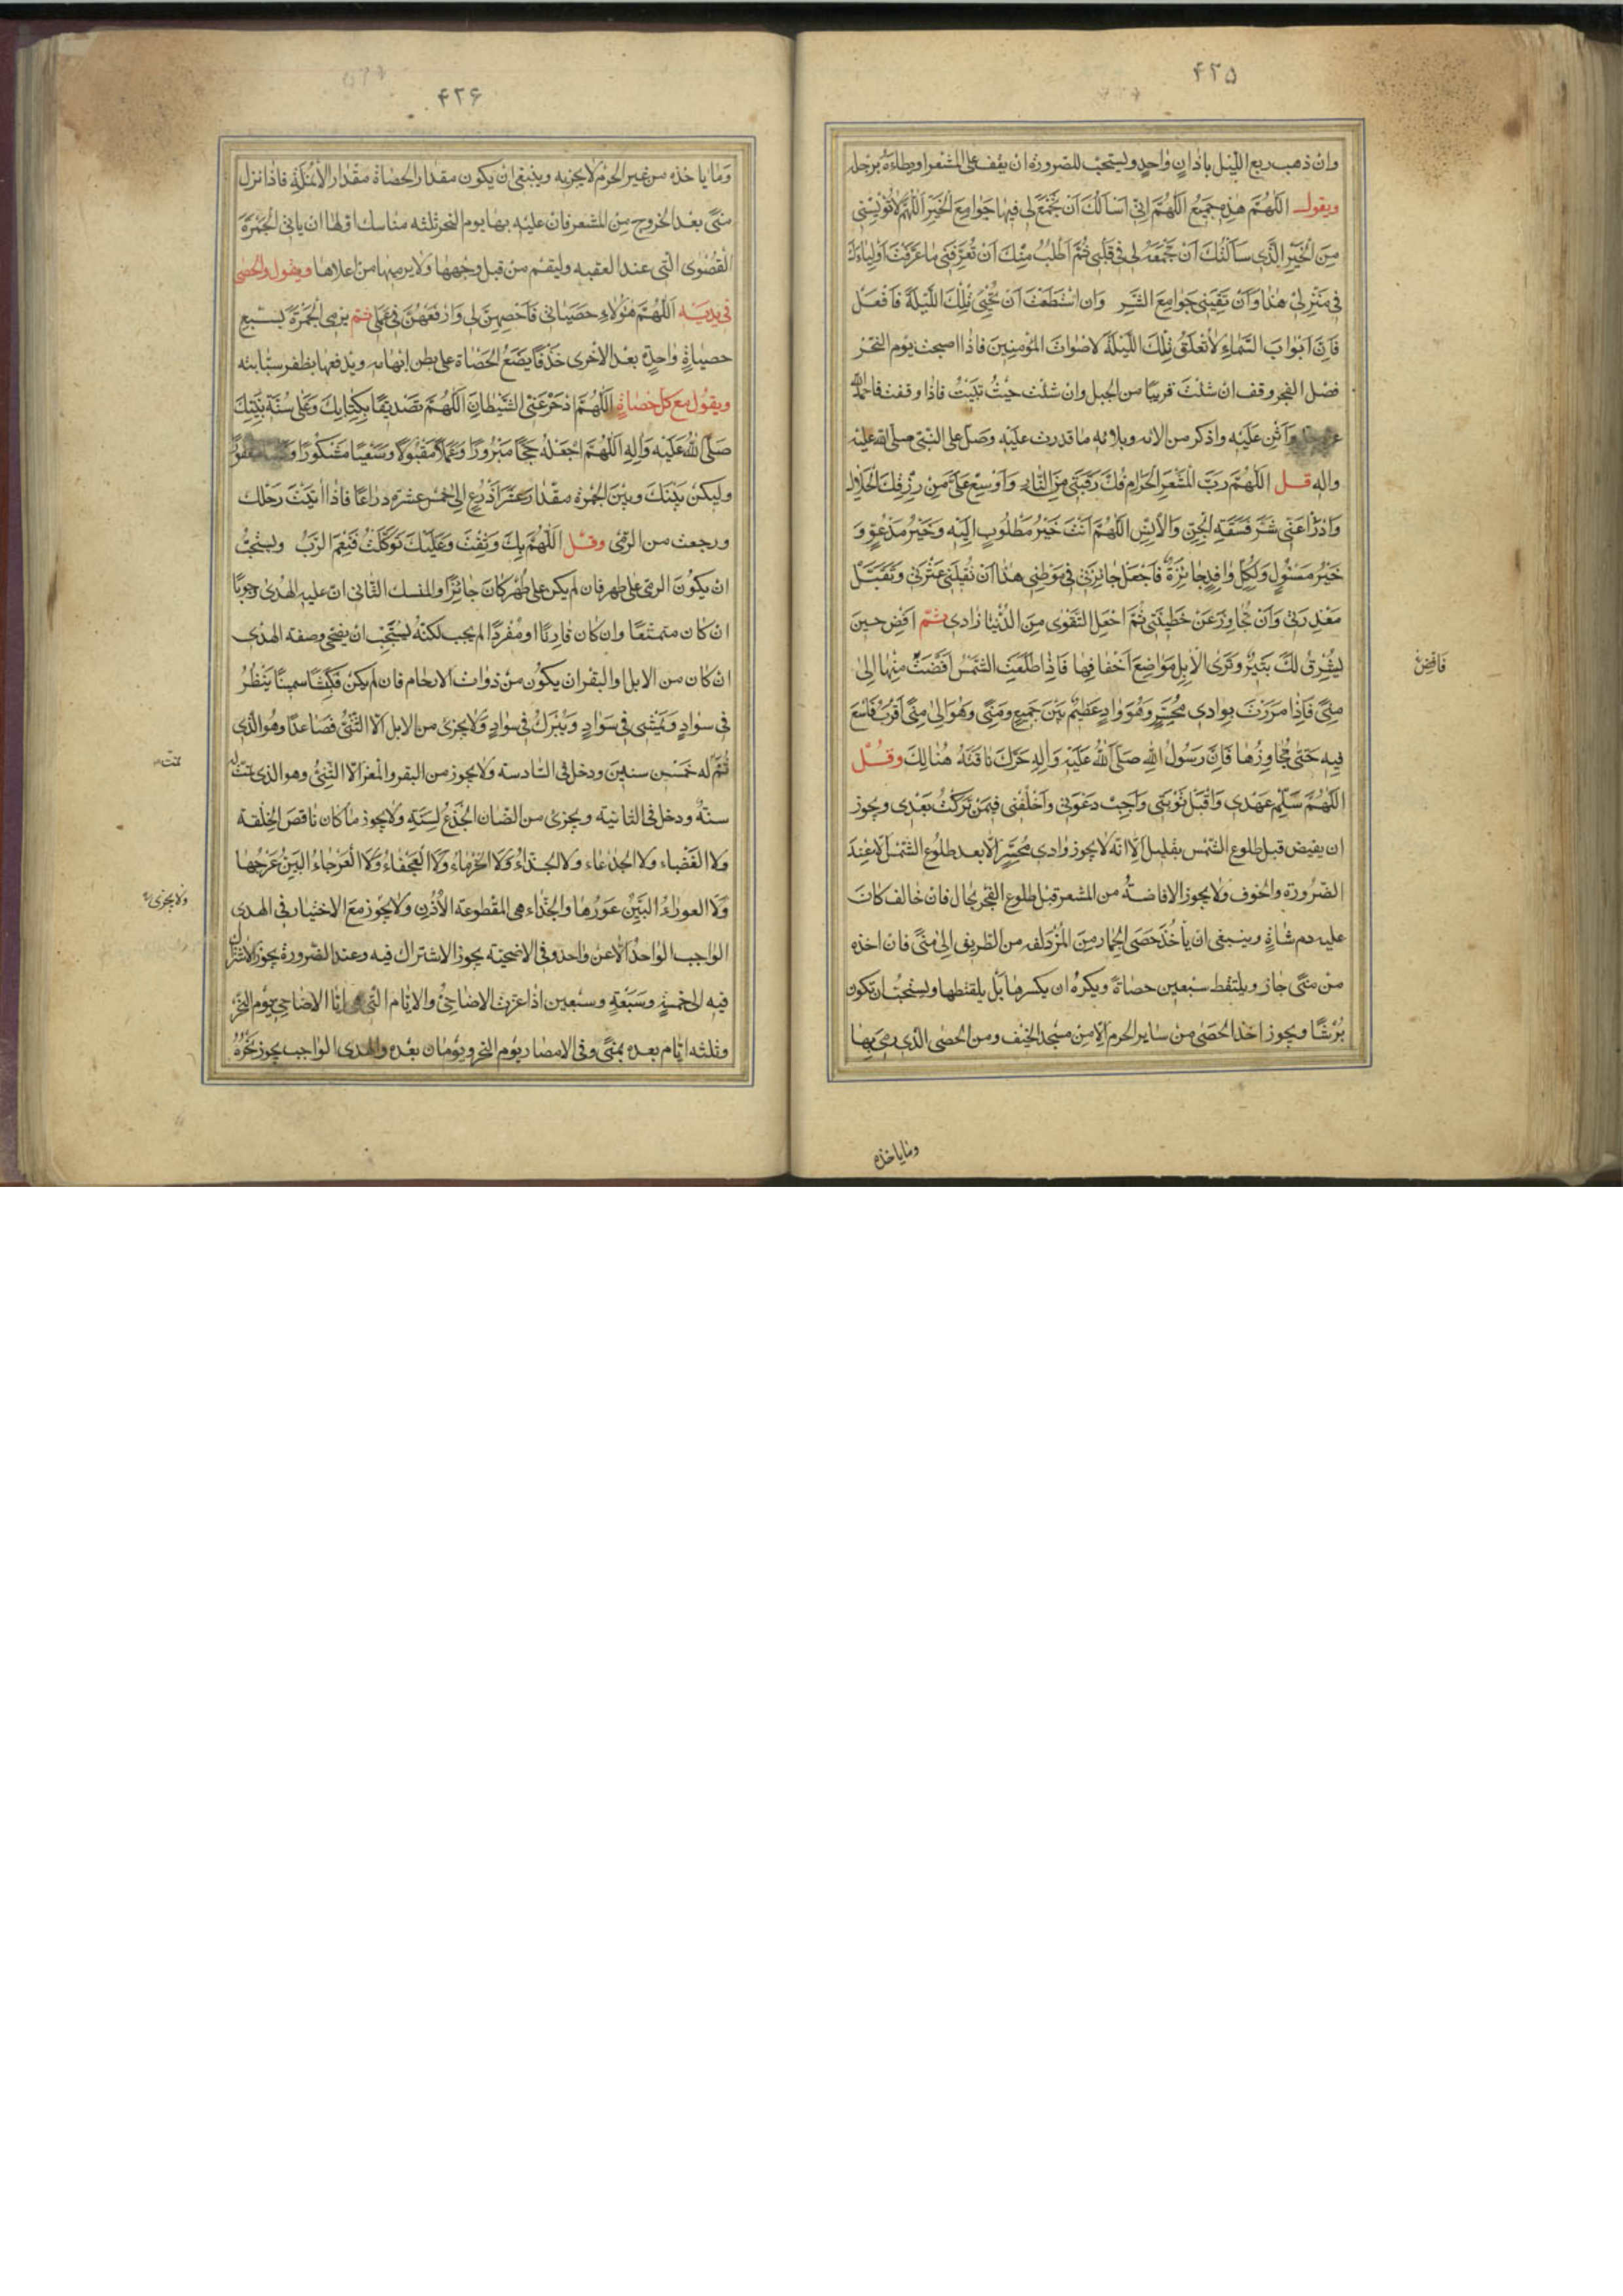 ۴۲۵
وان ذهب ربع الليل باذان واحد ويستحب للصرورة ان يقف على المشعر او يطاءه برجله
ويقول اللهم هذه جميع اللهم اني اسالك ان تجمع لي فيها جوامع الخير اللهم لا تؤيسني
من الخير الذي سالتك ان تجمعه لي في قلبي ثم اطلب منك ان تعرفني ما عرفت اولياءك
في منزلي هذا وان تقيني جوامع الشر وان استطعت ان تحيي تلك الليلة فافعل
فان ابواب السماء لا تغلق تلك الليلة لاصوات المؤمنين فاذا اصبحت يوم النحر
فصل الفجر وقف ان شئت قريبا من الجبل وان شئت حيث تبيت فاذا وقفت فاحمد الله
واثن عليه واذكر من الائه وبلائه ما قدرت عليه وصل على النبي صلى الله عليه
واله قل اللهم رب المشعر الحرام فك رقبتي من النار واوسع علي من رزقك الحلال
وادرأ عني شر فسقة الجن والانس اللهم انت خير مطلوب اليه وخير مدعو و
خير مسئول ولكل وافد جائزة فاجعل جائزتي في موطني هذا ان تقيلني عثرتي وتقبل
معذرتي وان تجاوز عن خطيئتي ثم اجعل التقوى من الدنيا زادي ثم افض حين
يشرق لك ثبير وترى الابل مواضع اخفافها فاذا طلعت الشمس افضت منها الى
فافض
منى فاذا مررت بوادي محسر وهو واد عظيم بين جميع ومنى وهو الى منى اقرب فاسع
فيه حتى تجاوزها فان رسول الله صلى الله عليه واله حرك ناقته هنالك وقل
اللهم سلم عهدي واقبل توبتي واجب دعوتي واخلفني فيمن تركت بعدي ويجوز
ان يفيض قبل طلوع الشمس بقليل الا انه لا يجوز وادي محسر الا بعد طلوع الشمس الا عند
الضرورة والخوف ولا يجوز الافاضة من المشعر قبل طلوع الفجر بحال فان خالف كان
عليه دم شاة وينبغي ان ياخذ حصى الجمار من المزدلفه من الطريق الى منى فان اخذه
من منى جاز ويلتقط سبعين حصاة ويكره ان يكسرها بل يلقتطها ويستحب ان تكون
برشا ويجوز اخذ الحصى من ساير الحرم الا من مسجد الخيف ومن الحصى الذي رمي بها
وما ياخذه
۴۲۶
وما ياخذه من غير الحرم لا يجزيه وينبغي ان يكون مقدار الحصاة مقدار الانملة فاذا نزل
منى بعد الخروج من المشعر فان عليه بها يوم النحر ثلثه مناسك اولها ان ياتي الجمرة
القصوى التي عند العقبه وليقم من قبل وجهها ولا يرميها من اعلاها ويقول والحصى
في يديه اللهم هؤلاء حصياتي فاحصهن لي وارفعهن في عملي ثم يرمي الجمرة بسبع
حصياة واحدة بعد الاخرى خذفا يضع الحصاة على بطن ابهامه ويدفعها بظفر سبابته
ويقول مع كل حصاة اللهم ادحر عني الشيطان اللهم تصديقا بكتابك وعلى سنة نبيك
صلى الله عليه واله اللهم اجعله حجا مبرورا وعملا مقبولا وسعيا مشكورا
وليكن بينك وبين الجمرة مقدار عشر اذرع الى خمس عشره ذراعا فاذا اتيت رحلك
ورجعت من الرمي وقل اللهم بك وثقت وعليك توكلت فنعم الرب ويستحب
ان يكون الرمي على طهر فان لم يكن على طهر كان جائزا والمنسك الثاني ان عليه الهدى وجوبا
ان كان متمتعا وان كان قارنا او مفردا لم يجب لكنه يستحب ان يضحي وصفة الهدى
ان كان من الابل والبقر ان يكون من ذوات الارحام فان لم يكن فكبشا سمينا ينظر
في سواد ويمشى في سواد ويبرك في سواد ولا يجزى من الابل الا الثني فصاعدا وهو الذي
تم له خمس سنين ودخل في السادسه ولا يجوز من البقر والمعز الا الثني وهو الذي تمت له
تمت
سنة ودخل في الثانيه ويجزى من الضان الجذع لسنته ولا يجوز ما كان ناقص الخلقة
ولا العضباء ولا الجذعاء ولا الجذاء ولا الخرماء ولا العجفاء ولا العرجاء البين عرجها
ولا العوراء البين عورها والجذاء هي المقطوعه الأذن ولا يجوز مع الاختيار في الهدى
ولا يجزى
الواجب الواحد الا عن واحد وفي الاضحيه يجوز الاشتراك فيه وعند الضرورة يجوز الاشتراك
فيه الى خمسة وسبعة وسبعين اذا عزت الاضاحي والايام الاضاحي يوم النحر
وثلثه ايام بعده بمنى وفي الامصار يوم النحر ويومان بعده والهدى الواجب يجوز نحره